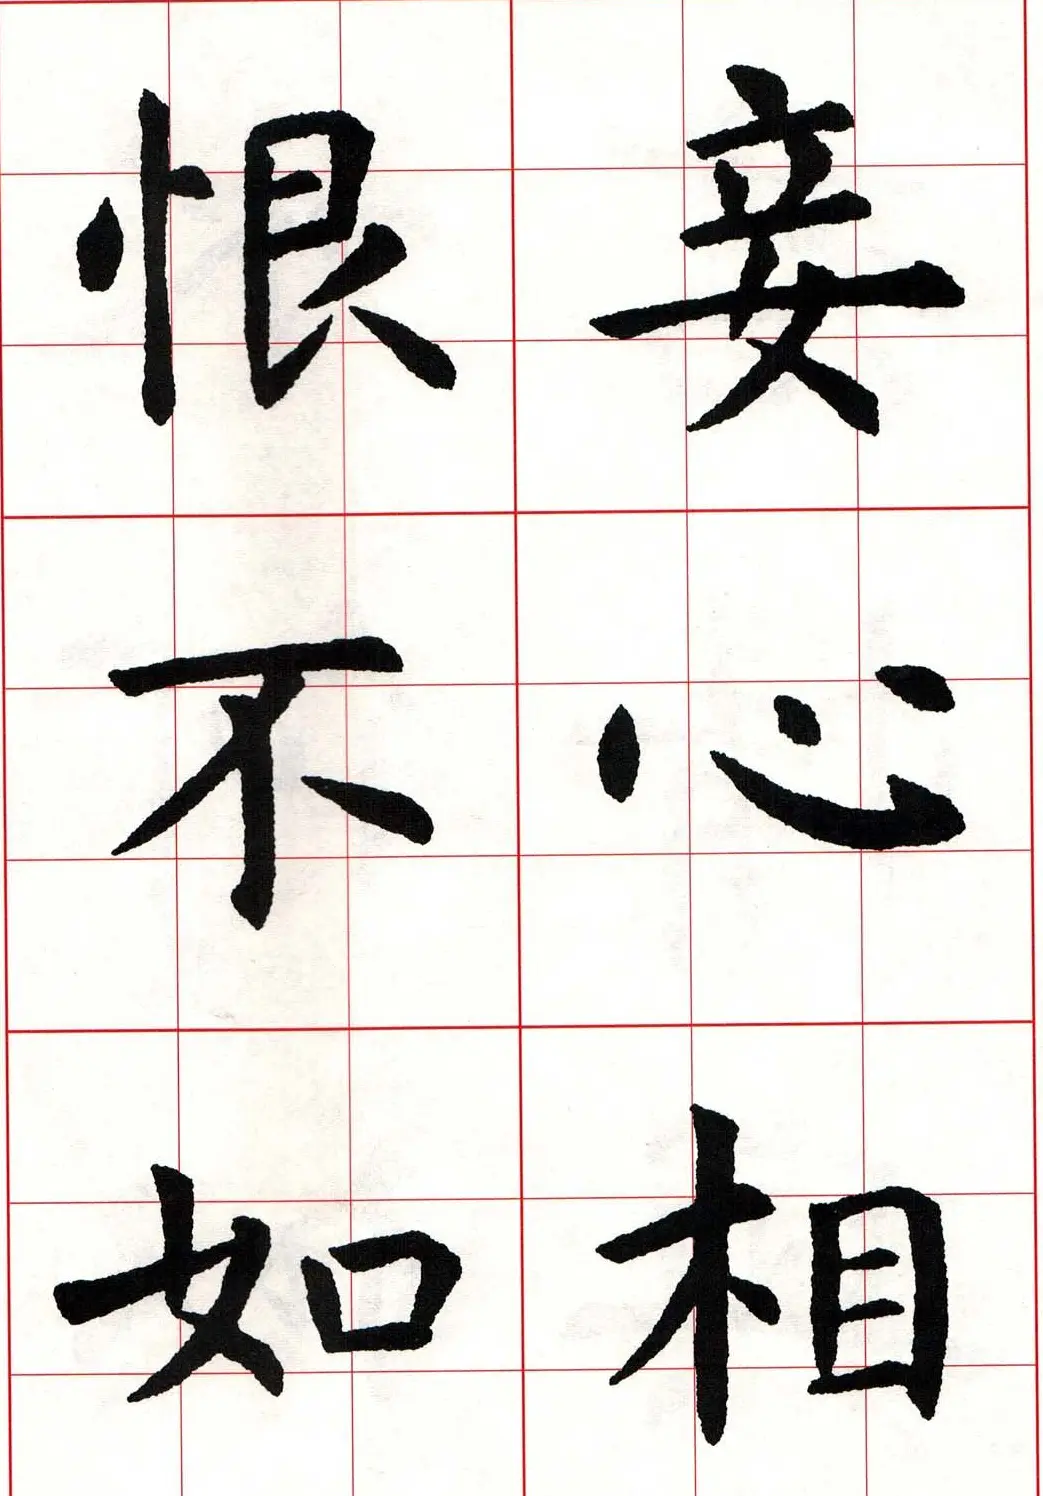 妾心相
恨不如